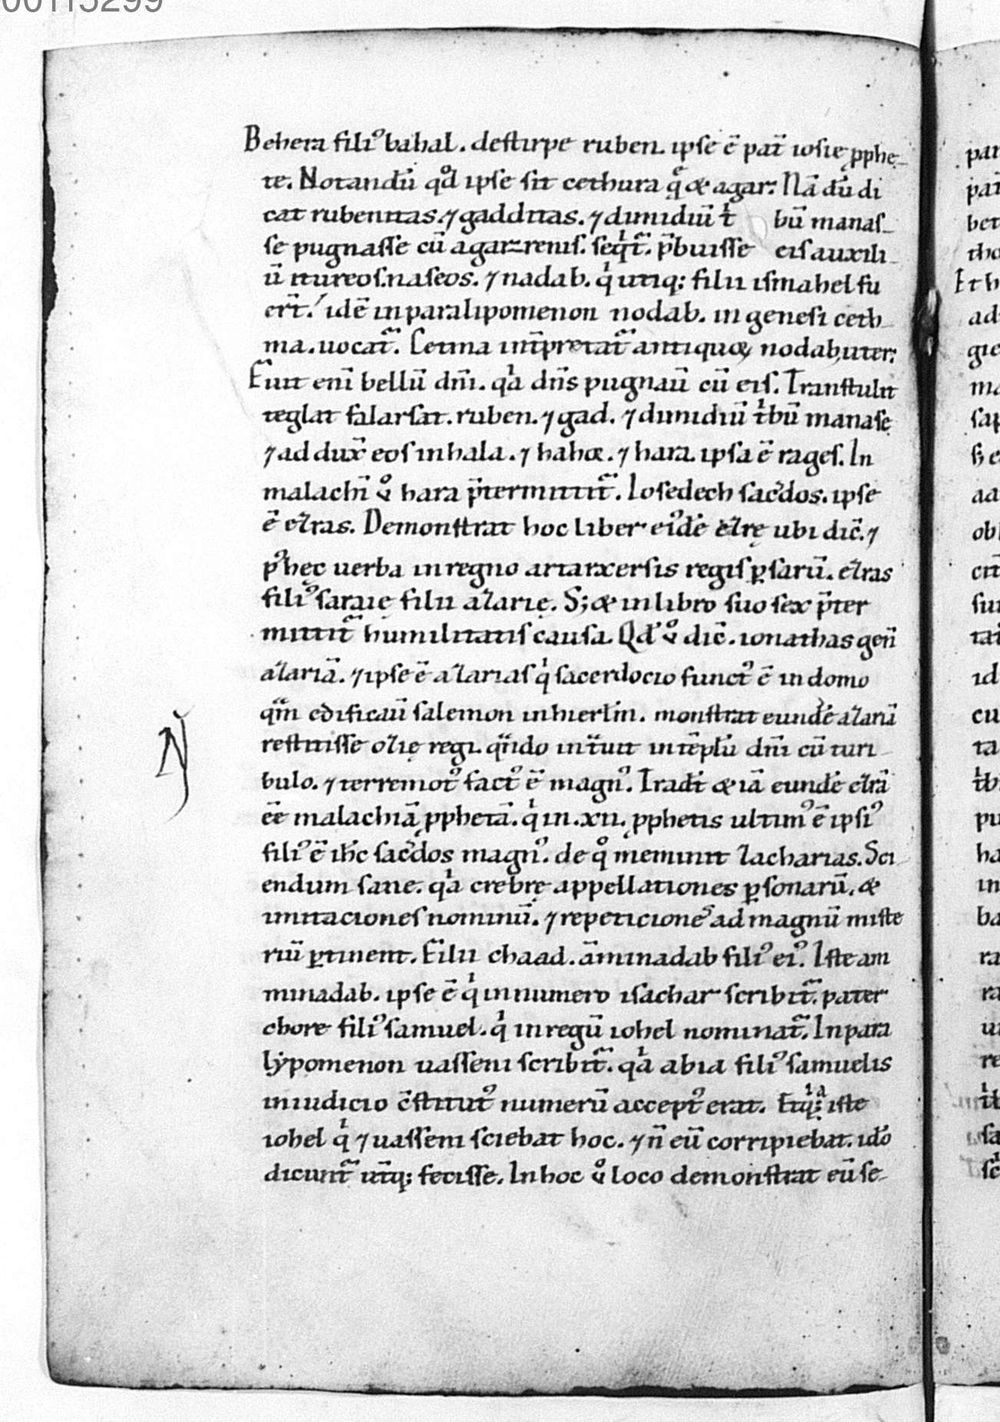 00115299
Behera filiꝰ bahal. destirpe ruben. ipse ē pat̄ iosię ꝓphe-
te. Notandū qđ ipse sit cethura q̄ & agar: Nā dū di
cat rubenitas. ⁊ gadditas. ⁊ dimidiū t̄ bū manas-
se pugnasse cū agarrenis. seq̄t̄. p̄buisse eis auxili-
ū itureos. naseos. ⁊ nadab. qi utiq; filii ismahel fu
ert̄. idē in paralipomenon nodab. in genesi ceth-
ma. uocat̄. Cetma int̄pretat̄ antiquꝰ, nodab, uter;
Fuit enī bellū dn̄i. qa dn̄s pugnaū cū eis. Transtulit
teglat falarsat. ruben. ⁊ gad. ⁊ dimidiū tbū manase
⁊ ad dux̄ eos in hala. ⁊ haboe. ⁊ hara. ipsa ē rages. In
malachī ꝟo hara p̄termittit̄. Iosedech sac̄dos. ipse
ē esras. Demonstrat hoc liber eiꝰdē esrę ubi dic̄. ⁊
pꝰ hęc uerba in regno artarxersis regis ꝑsarū. esras
filiꝰ saraię filii azarię. S; & in libro suo sex p̄ter
mittit̄ humilitatis causa. Qđ ꝟo dic̄. ionathas geñ
azariā. ⁊ ipse ē azarias qi sacerdocio functꝰ ē in domo
qm̄ edificaū salemon in hierl̄m. monstrat eundē azariā
restitisse ozię regi. qn̄do int̄uit in tēplū dn̄i cū turi-
bulo. ⁊ terremotꝰ factꝰ ē magnꝰ. Tradt̄ & iā eundē esrā
eē malachiā ꝓphetā. qi in .xii. ꝓphetis ultimꝰ ē ipsiꝰ
filiꝰ ē ih̄c sac̄dos magnꝰ. de qo meminit zacharias. Sci-
endum sane. qa crebrę appellationes ꝑsonarū. &
imitaciones nominū. ⁊ repeticiones ad magnū miste
riū ꝑtinent. Filii chaad. aminadab filiꝰ eiꝰ. Iste am
minadab. ipse ē qi in numero isachar scribit̄. pater
chore filiꝰ samuel. qi in regū iohel nominat̄. In para
lypomenon uasseni scribit̄. qa abia filiꝰ samuelis
in iudicio c̄stitutꝰ numerū acceptꝰ erat. iste
iohel qi ⁊ uasseni sciebat hoc. ⁊ n̄ eū corripiebat. ido
dicunt̄ ut̄q; fecisse. In hoc ꝟo loco demonstrat eū se-